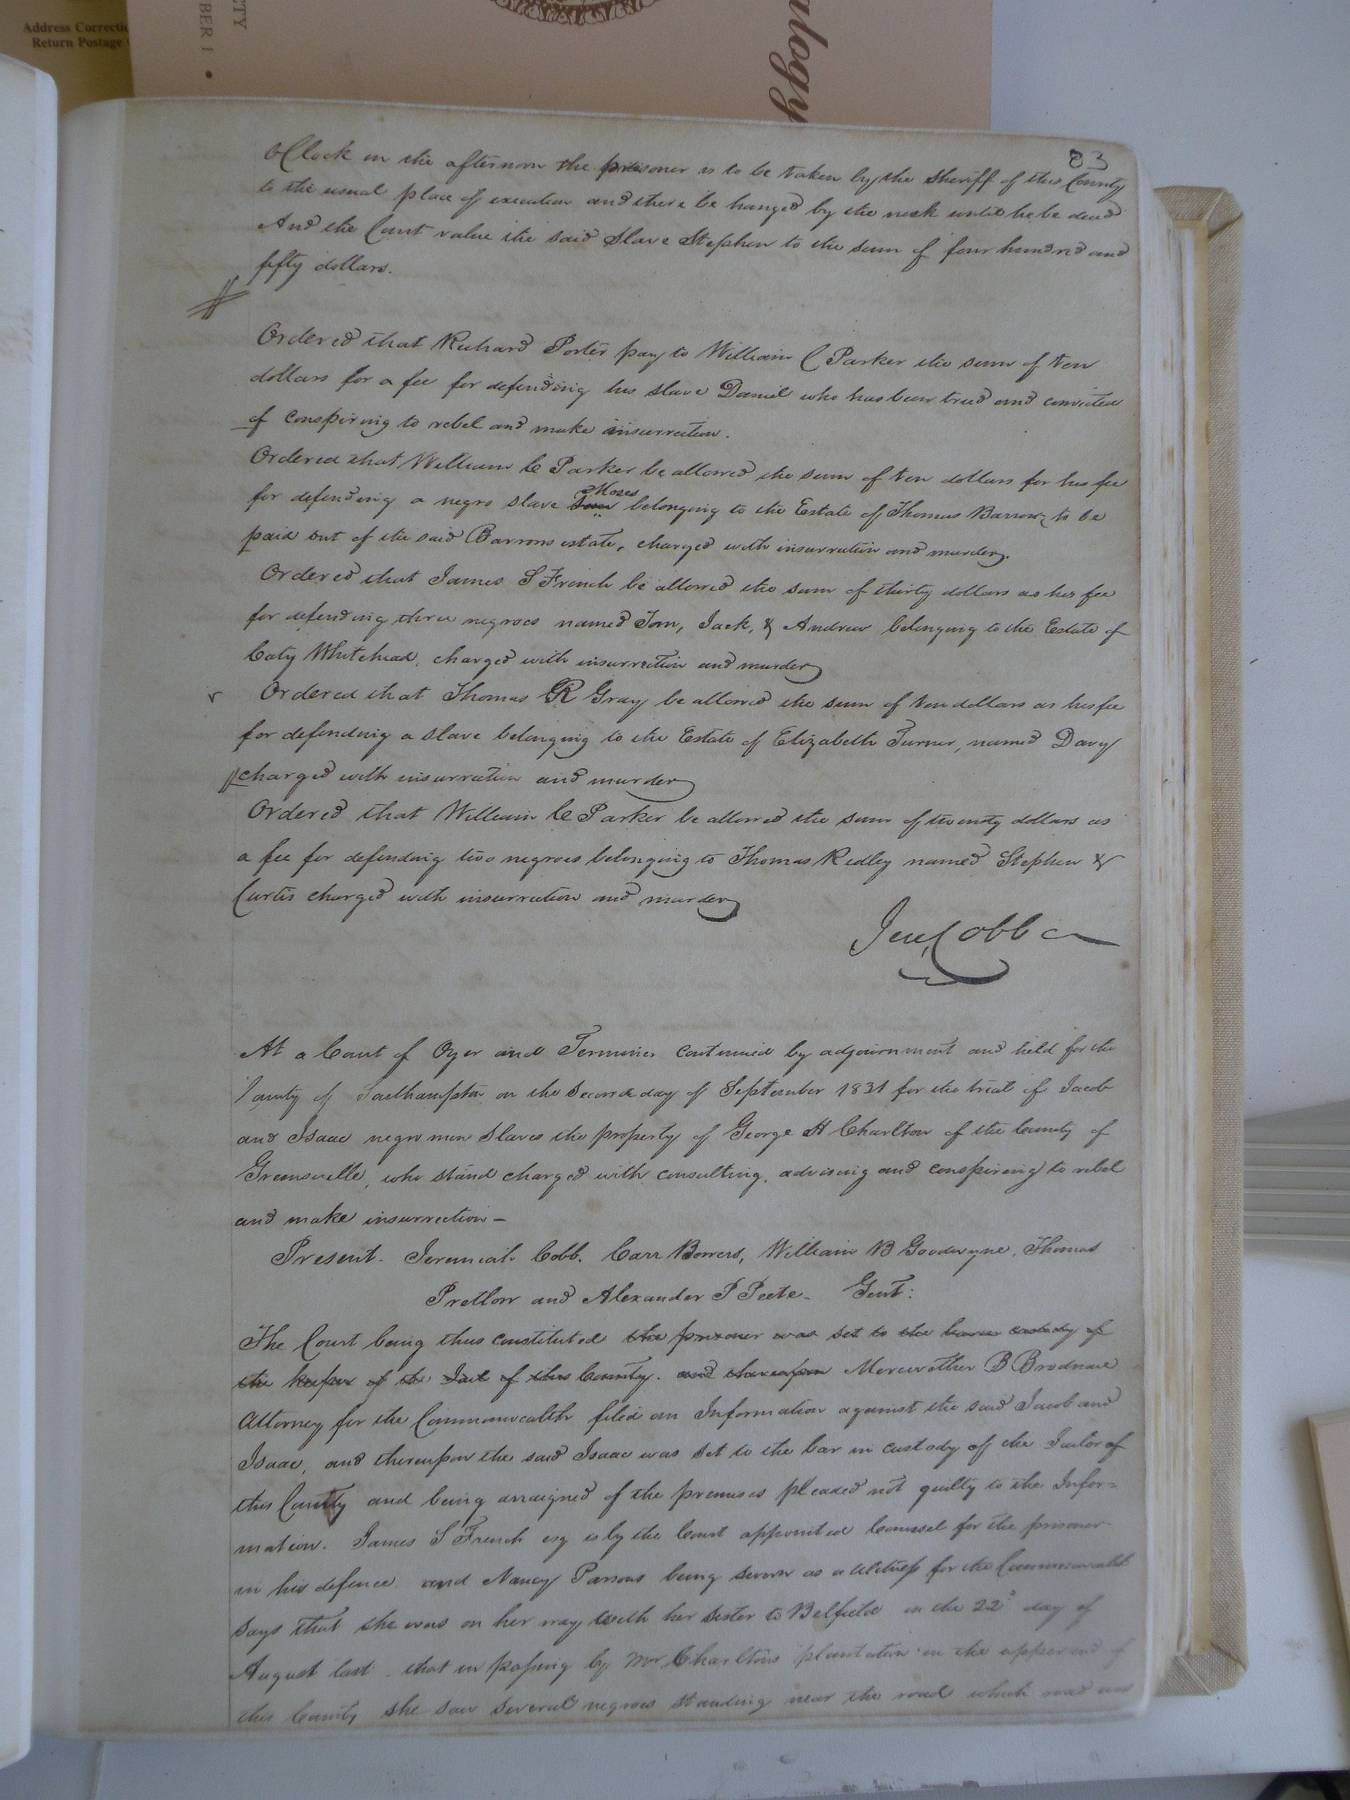 Address Correcti
Return Postage
TY
BER 1 •
alogy
83
oClock in the afternoon the prisoner is to be taken by the Sheriff of this County
to the usual place of execution and there be hanged by the neck until he be dead
And the Court value the said Slave Stephen to the sum of four hundred and
fifty dollars.
Ordered that Richard Porter pay to William C Parker the sum of ten
dollars for a fee for defending his slave Daniel who has been tried and convicted
of conspiring to rebel and make insurrection.
Ordered that William C Parker be allowed the sum of ten dollars for his fee
Moses
for defending a negro slave belonging to the Estate of Thomas Barrow, to be
paid out of the said Barrows estate, charged with insurrection and murder.
Ordered that James S French be allowed the sum of thirty dollars as his fee
for defending three negroes named Tom, Jack, & Andrew belonging to the Estate of
Caty Whitehead, charged with insurrection and murder
Ordered that Thomas R Gray be allowed the sum of ten dollars as his fee
for defending a slave belonging to the Estate of Elizabeth Turner, named Davy
charged with insurrection and murder
Ordered that William C Parker be allowed the sum of twenty dollars as
a fee for defending two negroes belonging to Thomas Ridley named Stephen &
Curtis charged with insurrection and murder
Jere, Cobb
At a Court of Oyer and Terminer continued by adjournment and held for the
County of Southampton on the Second day of September 1831 for the trial of Jacob
and Isaac negro men slaves the property of George H Charlton of the County of
Greensville, who stand charged with consulting, advising and conspiring to rebel
and make insurrection –
Present. Jeremiah Cobb. Carr Bowers, William B Goodwyne, Thomas
Pretlow and Alexander P Peete – Gent:
The Court being thus constituted the prisoner was set to the barr custody of
the keeper of the Jail of this County. and thereupon Merewether B Brodnax
Attorney for the Commonwealth filed an Information against the said Jacob and
Isaac, and thereupon the said Isaac was set to the bar in custody of the Jailor of
this County and being arraigned of the premises pleaded not guilty to the Infor=
mation. James S French esq is by the Court appointed Counsel for the prisoner
in his defence and Nancy Parsons being sworn as a Witness for the Commonwealth
says that she was on her way with her sister to Belfield on the 22d day of
August last. that in passing by Mr Charltons plantation in the upper end of
this County she saw several negroes standing near the road which road